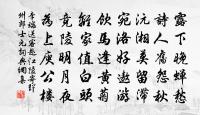 露下晚蟬愁
詩人舊怨秋
沅湘莫留滯
宛洛好遨遊
飲馬逢黃菊
離家值白頭
竟陵明月夜
為上庾公樓
李端送客赴江陵寄郢
州郎士元